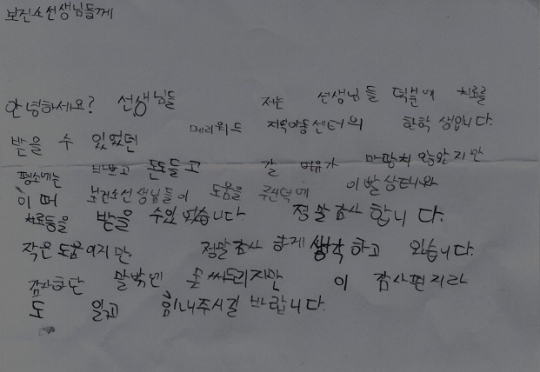 보건소선생님들께
안녕하세요? 선생님들 저는 선생님들 덕분에 치료를
받을 수 있었던 메리워드 지역아동센터의 한학생입니다.
평소에는 바쁘고 돈도들고 갈 여유가 마땅치 않았지만
이때 보건소선생님들이 도움을 주신덕에 이빨상태와
치료등을 받을 수있었습니다 정말감사합니다.
작은도움이지만 정말감사하게 생각하고 있습니다.
감사하단 말밖엔 못써드리지만 이 감사편지라
도 읽고 힘내주시길 바랍니다.